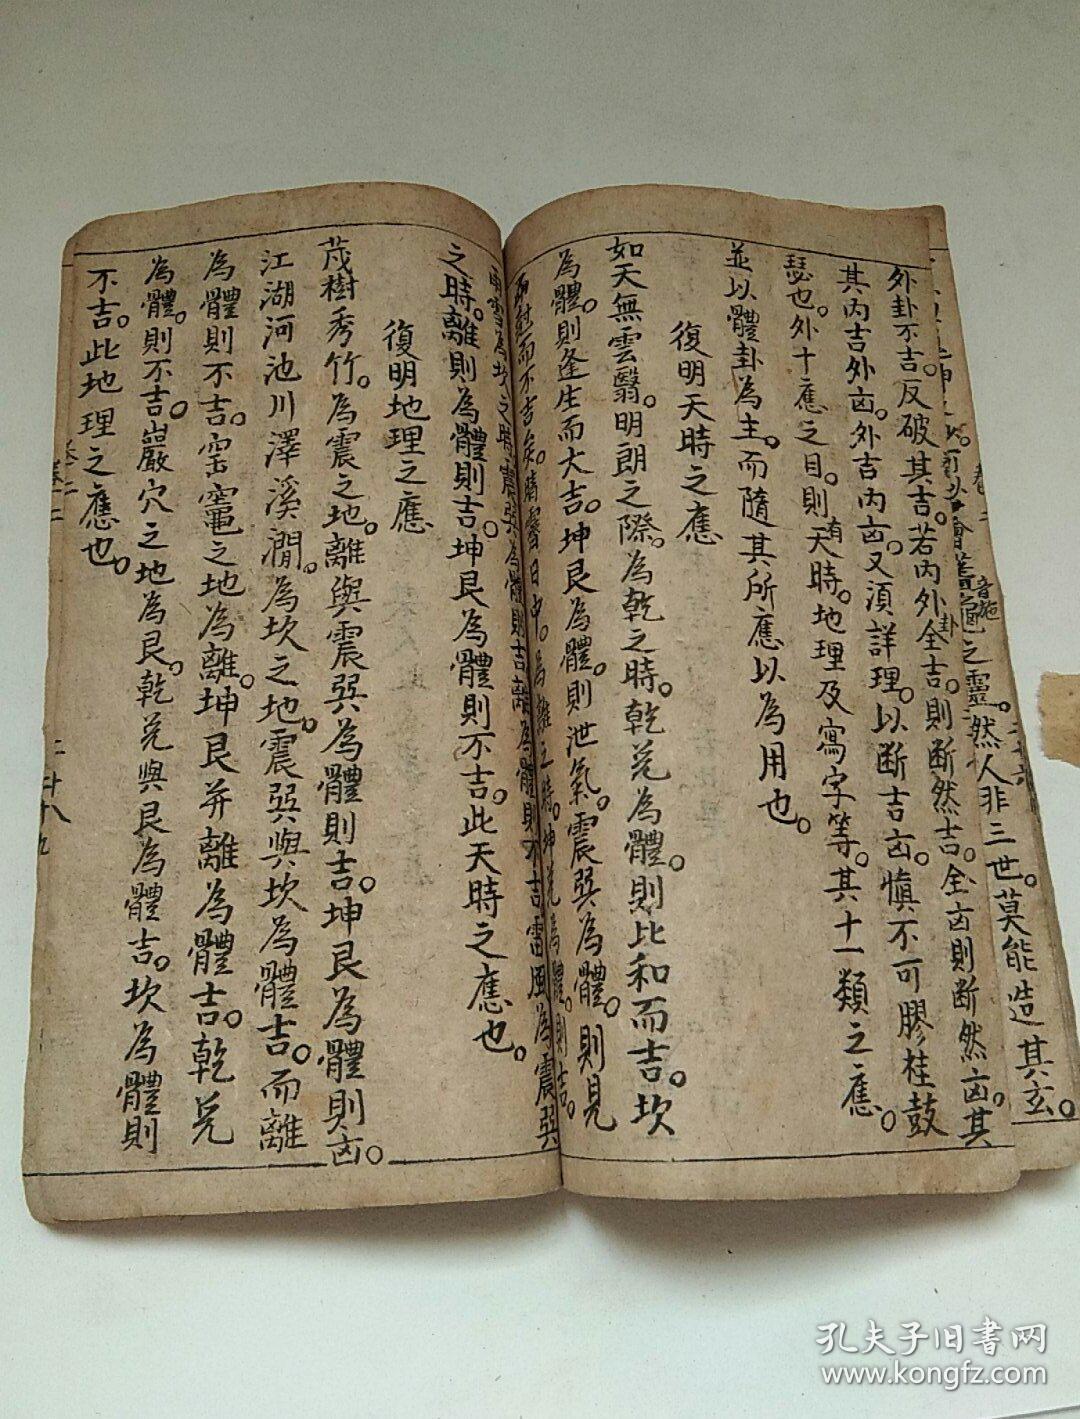 之靈。然人非三世。莫能造其玄。
外卦不吉。反破其吉。若內外卦全吉。則断然吉。全凶則断然凶。其
其內吉外凶。外吉內凶。又須詳理。以断吉凶。慎不可膠桂鼓
瑟也。外十應之目。則有天時。地理及寫字等。其十一類之應。
並以體卦為主。而隨其所應以為用也。
復明天時之應
如天無雲翳。明朗之際。為乾之時。乾兌為體。則比和而吉。坎
為體。則逢生而大吉。坤艮為體。則泄氣。震巽為體。則見
而不吉矣。晴霽日中。為離之時。坤艮為體。則吉。
為坎之時。震巽為體則吉。離為體則不吉。雷風為震巽
之時。離則為體則吉。坤艮為體則不吉。此天時之應也。
復明地理之應
茂樹秀竹。為震之地。離與震巽為體則吉。坤艮為體則凶。
江湖河池川澤溪澗。為坎之地。震巽與坎為體吉。而離
為體則不吉。窑竈之地為離。坤艮并離為體吉。乾兌
為體。則不吉。巖穴之地為艮。乾兌與艮為體吉。坎為體則
不吉。此地理之應也。
卷二
孔夫子旧書网
www.kongfz.com